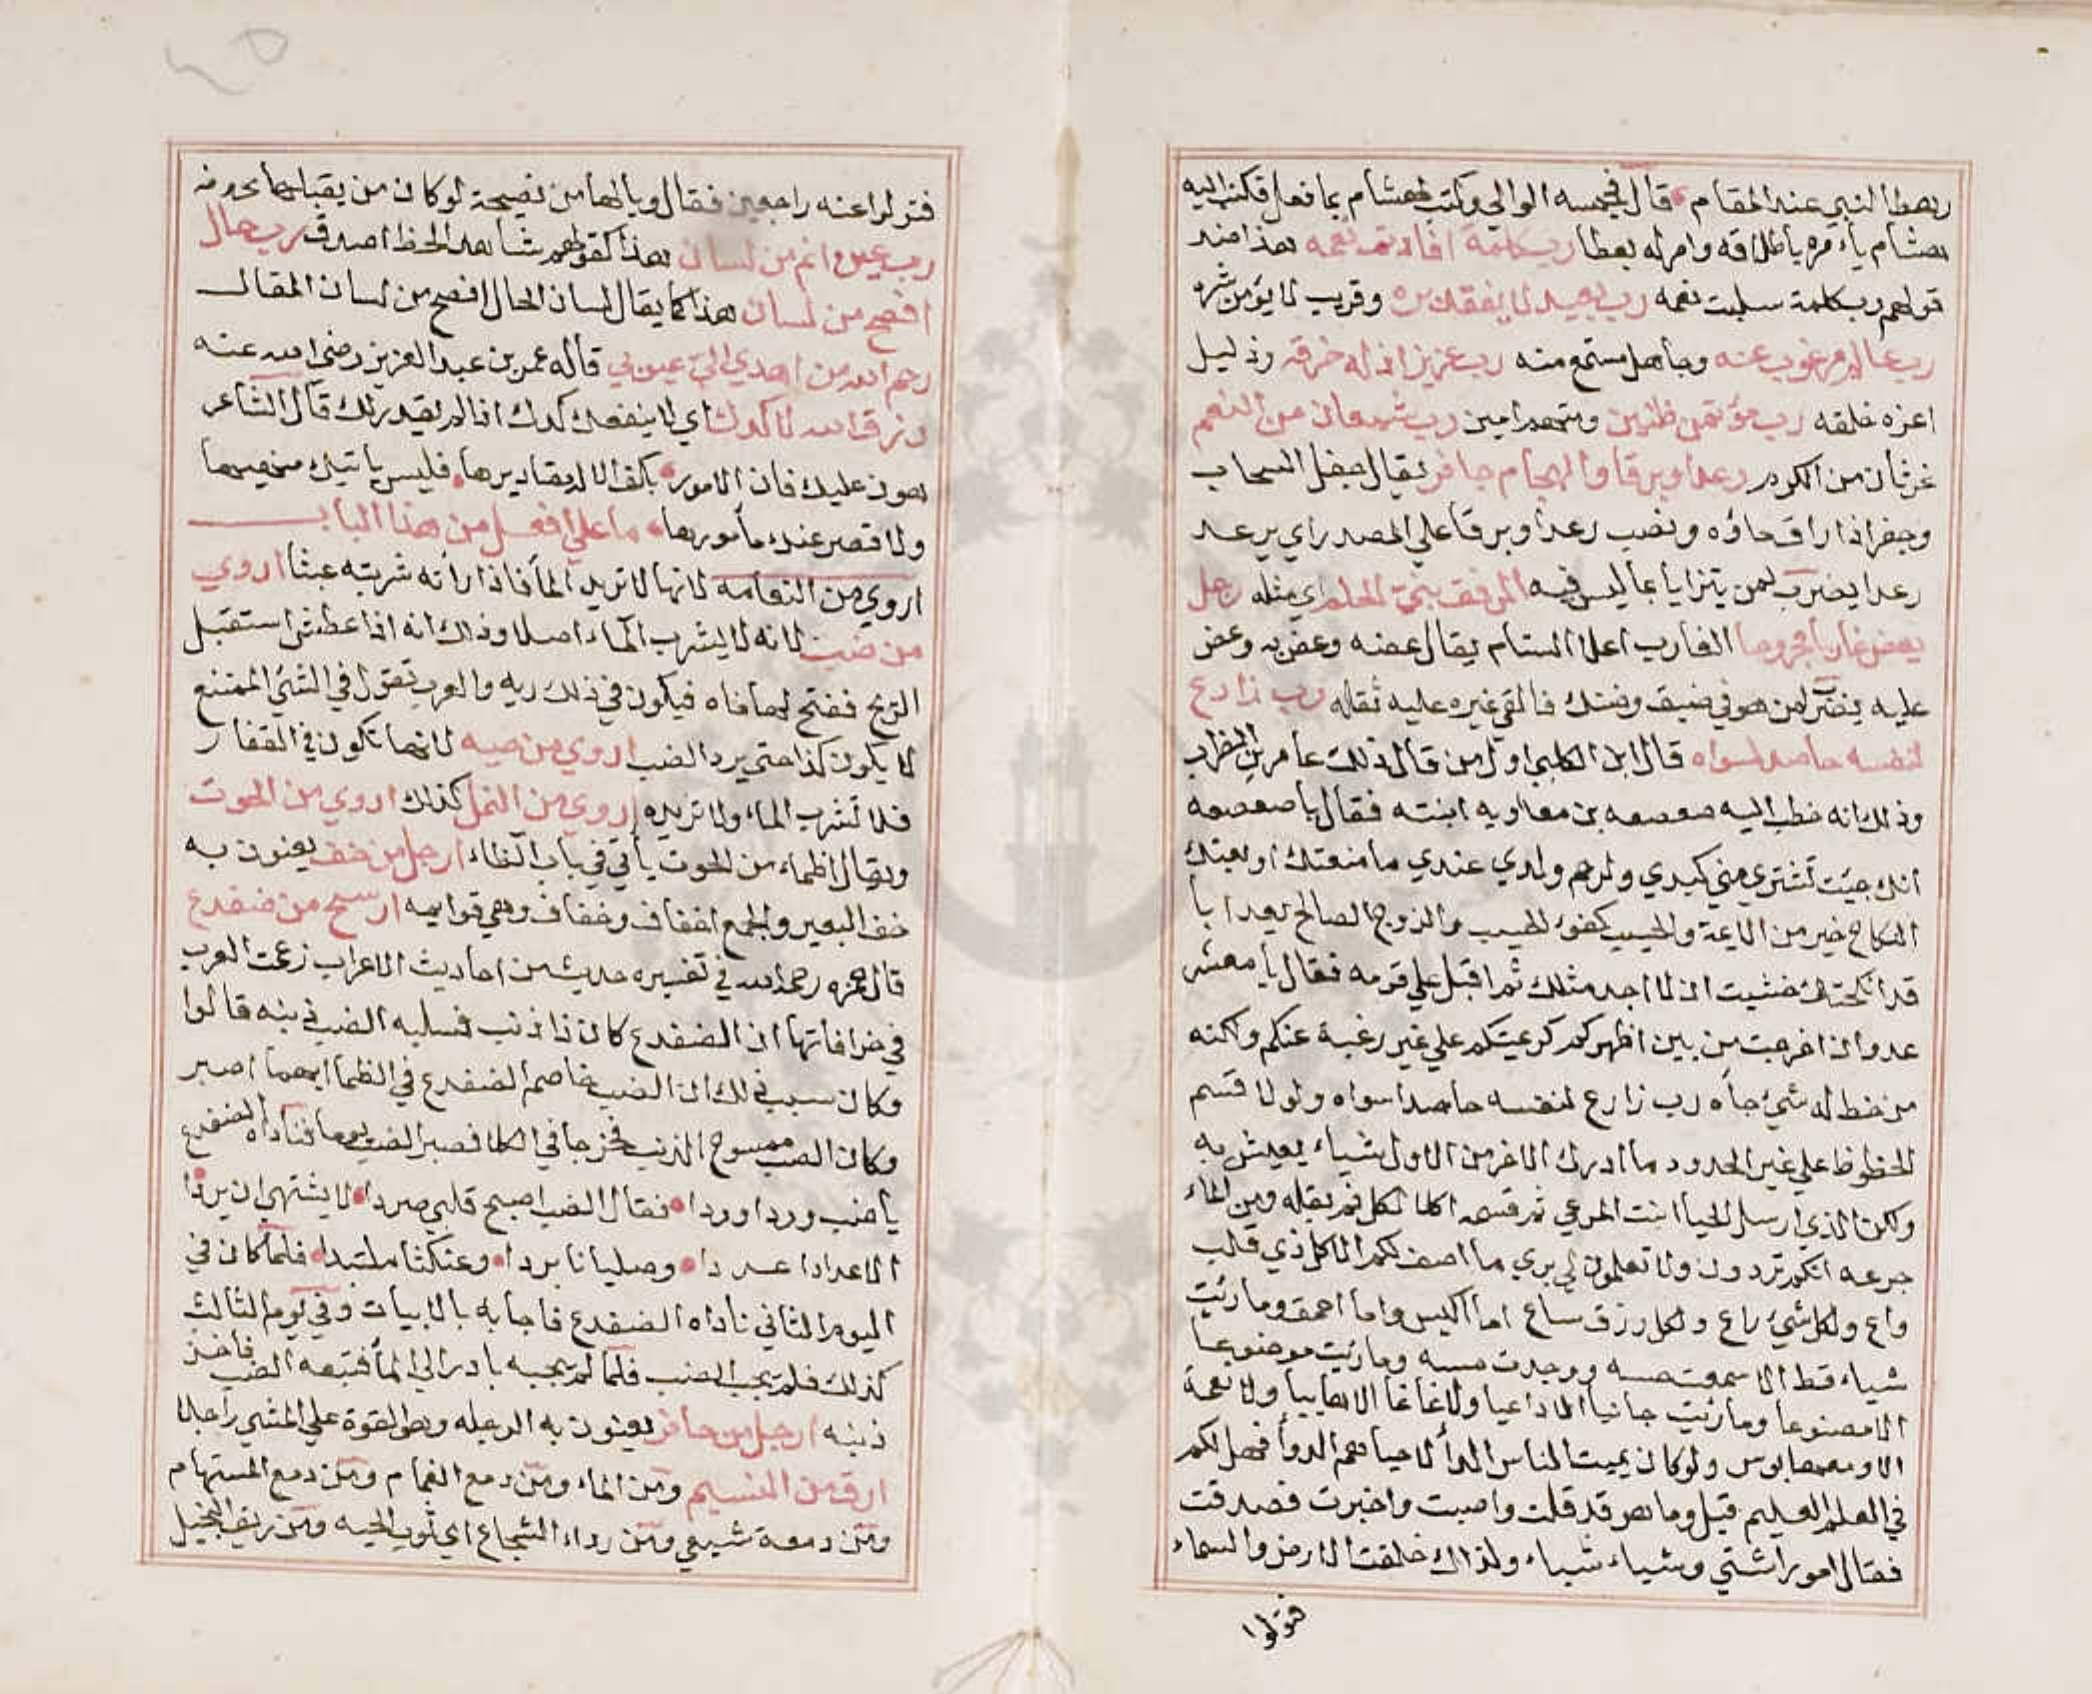 رهط النبي عند المقام قال فحبسه الوالي وكتب لهشام بما فعل فكتب اليه
هشام يأمره باطلاقه وامر له بعطا رب كلمة افادت نعمه هذا ضد
قولهم رب كلمة سلبت نعمه رب بعيد لا يفقد بره وقريب لا يؤمن شره
رب عالم مرغوب عنه وجاهل مستمع منه رب عزيز اذله خرقه وذليل
اعزه خلقه رب مؤتمن ظنين ومتهم امين رب شبعان من النعم
غرثان من الكرم رعدا وبرقا والجهام جافر يقال جفل السحاب
وجفر اذا اراق ماؤه ونصب رعدا وبرقا علي المصدر اي يرعد
رعدا يضرب لمن يتزايا بما ليس فيه الرفق بني الحلم اي مثله رجل
يعض غاربا مجروحا الغارب اعلا السنام يقال عضه وعض به وعض
عليه يضرب لمن هو في ضيق وضنك فالقي غيره عليه ثقله رب زارع
لنفسه حاصد لسواه قال ابن الكلبي اول من قال ذلك عامر بن الظرب
وذلك انه خطب اليه صعصعه بن معاويه ابنته فقال يا صعصعه
انك جيت تشتري مني كبدي وارحم ولدي عندي ما منعتك او بعتك
النكاح خير من الايمة والحسيب كفؤ الحسيب والزوج الصالح يعد ابا
قد انكحتك خشيت ان لا اجد مثلك ثم اقبل علي قومه فقال يا معشر
عدوان اخرجت من بين اظهركم كريمتكم علي غير رغبة عنكم ولكنه
من خط له شئ جاه رب زارع لنفسه حاصدا سواه ولولا قسم
الحظوظ علي غير الحدود ما ادرك الاخر من الاول شياء يعيش به
ولكن الذي ارسل الحيا انبت المرعي ثم قسمه اكلا لكل فم بقله ومن الماء
جرعه انكم تردون ولا تعلمون لن يري ما اصف لكم الا كل ذي قلب
واع ولكل شئ راع ولكل رزق ساع اما اكيس واما احمق وما رئيت
شياء قط الا سمعت حسه ووجدت مسه وما رئيت موضوعا
الا مصنوعا وما رئيت جائيا الا داعيا ولا غانما الا خايبا ولا نعمة
الا ومعها بوس ولو كان يميت الناس الداء لاحياهم الدوأ فهل لكم
في العلم العليم قيل وما هو قد قلت واصبت واخبرت فصدقت
فقال امورا شتي وشياء شياء ولذالك خلقت الارض والسماء
فتولوا
فتولوا عنه راجعين فقال ويالها من نصيحة لو كان من يقبلها بحروفه
رب عين انم من لسان هذا كقولهم شاهد اللحظ اصدق رب حال
افصح من لسان هذا كما يقال لسان الحال افصح من لسان المقال
رحم الله من اهدي الي عيوبي قاله عمر بن عبد العزيز رضى الله عنه
رزق الله لا كدك اي لا ينفعك كدك اذا لم يقدر لك قال الشاعر
هون عليك فان الامور بكف الاله مقاديرها فليس ياتيك منهيها
ولا قصر عنك مأمورها ما علي افعل من هذا الباب
اروي من النعامه لانها لا تريد الماء فاذا راته شربته عبثا اروي
من ضب لانه لا يشرب الماء اصلا وذلك انه اذا عطش استقبل
الريح ففتح لها فاه فيكون في ذلك ريه والعرب تقول في الشئ الممتنع
لا يكون كذا حتي يرد الضب اروي من حيه لانها تكون في القفار
فلا تشرب الماء ولا تريده اروي من النمل كذلك اروي من الحوت
ويقال اظماء من الحوت يأتي في باب الظاء ارجل من خف يعنون به
خف البعير والجمع اخفاف وخفاف وهي قوايمه ارسح من ضفدع
قال حمزه رحمه الله في تفسيره حديث من احاديث الاعراب زعمت العرب
في خرافاتها ان الضفدع كان ذا ذنب فسلبه الضب ذنبه قالوا
وكان سبب ذلك ان الضب خاصم الضفدع في الظما ايهما اصبر
وكان الضب ممسوح الذنب فخرجا في الكلا فصبر الضب يومها فناداه الضفدع
يا ضب وردا وردا فقال الضب اصبح قلبي صردا لا يشتهي ان يردا
الا عرادا عردا وصليانا بردا وعنكثا ملتبدا فلما كان في
اليوم الثاني ناداه الضفدع فاجابه بالابيات وفي يوم الثالث
كذلك فلم يجب الضب فلما لم يجبه بادر الي الماء فتبعه الضب فاخذ
ذنبه ارجل من حافر يعنون به الرجله وهو القوة علي المشي راجلا
ارق من النسيم ومن الماء ومن دمع الغمام ومن دمع المستهام
ومن دمعة شيعي ومن رداء الشجاع اي ثوب الحيه ومن ريق البخيل